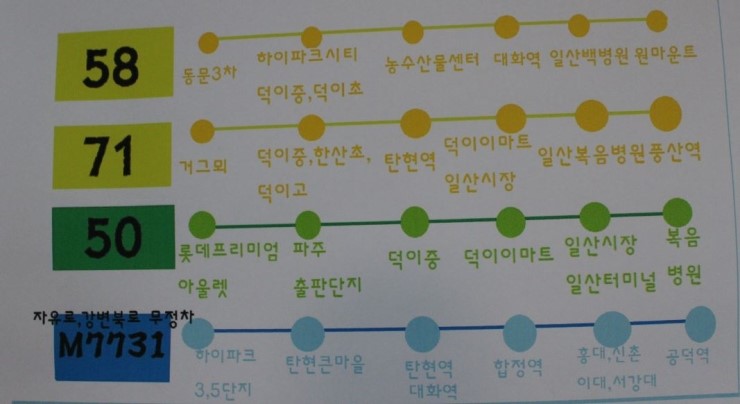 58
동문3차
하이파크시티
덕이중,덕이초
농수산물센터
대화역
일산백병원
원마운트
71
거그뫼
덕이중,한산초,
덕이고
탄현역
덕이이마트
일산시장
일산복음병원
풍산역
50
롯데프리미엄
아울렛
파주
출판단지
덕이중
덕이이마트
일산시장
일산터미널
복음
병원
자유로,강변북로 무정차
M7731
하이파크
3,5단지
탄현큰마을
탄현역
대화역
합정역
홍대,신촌
이대,서강대
공덕역